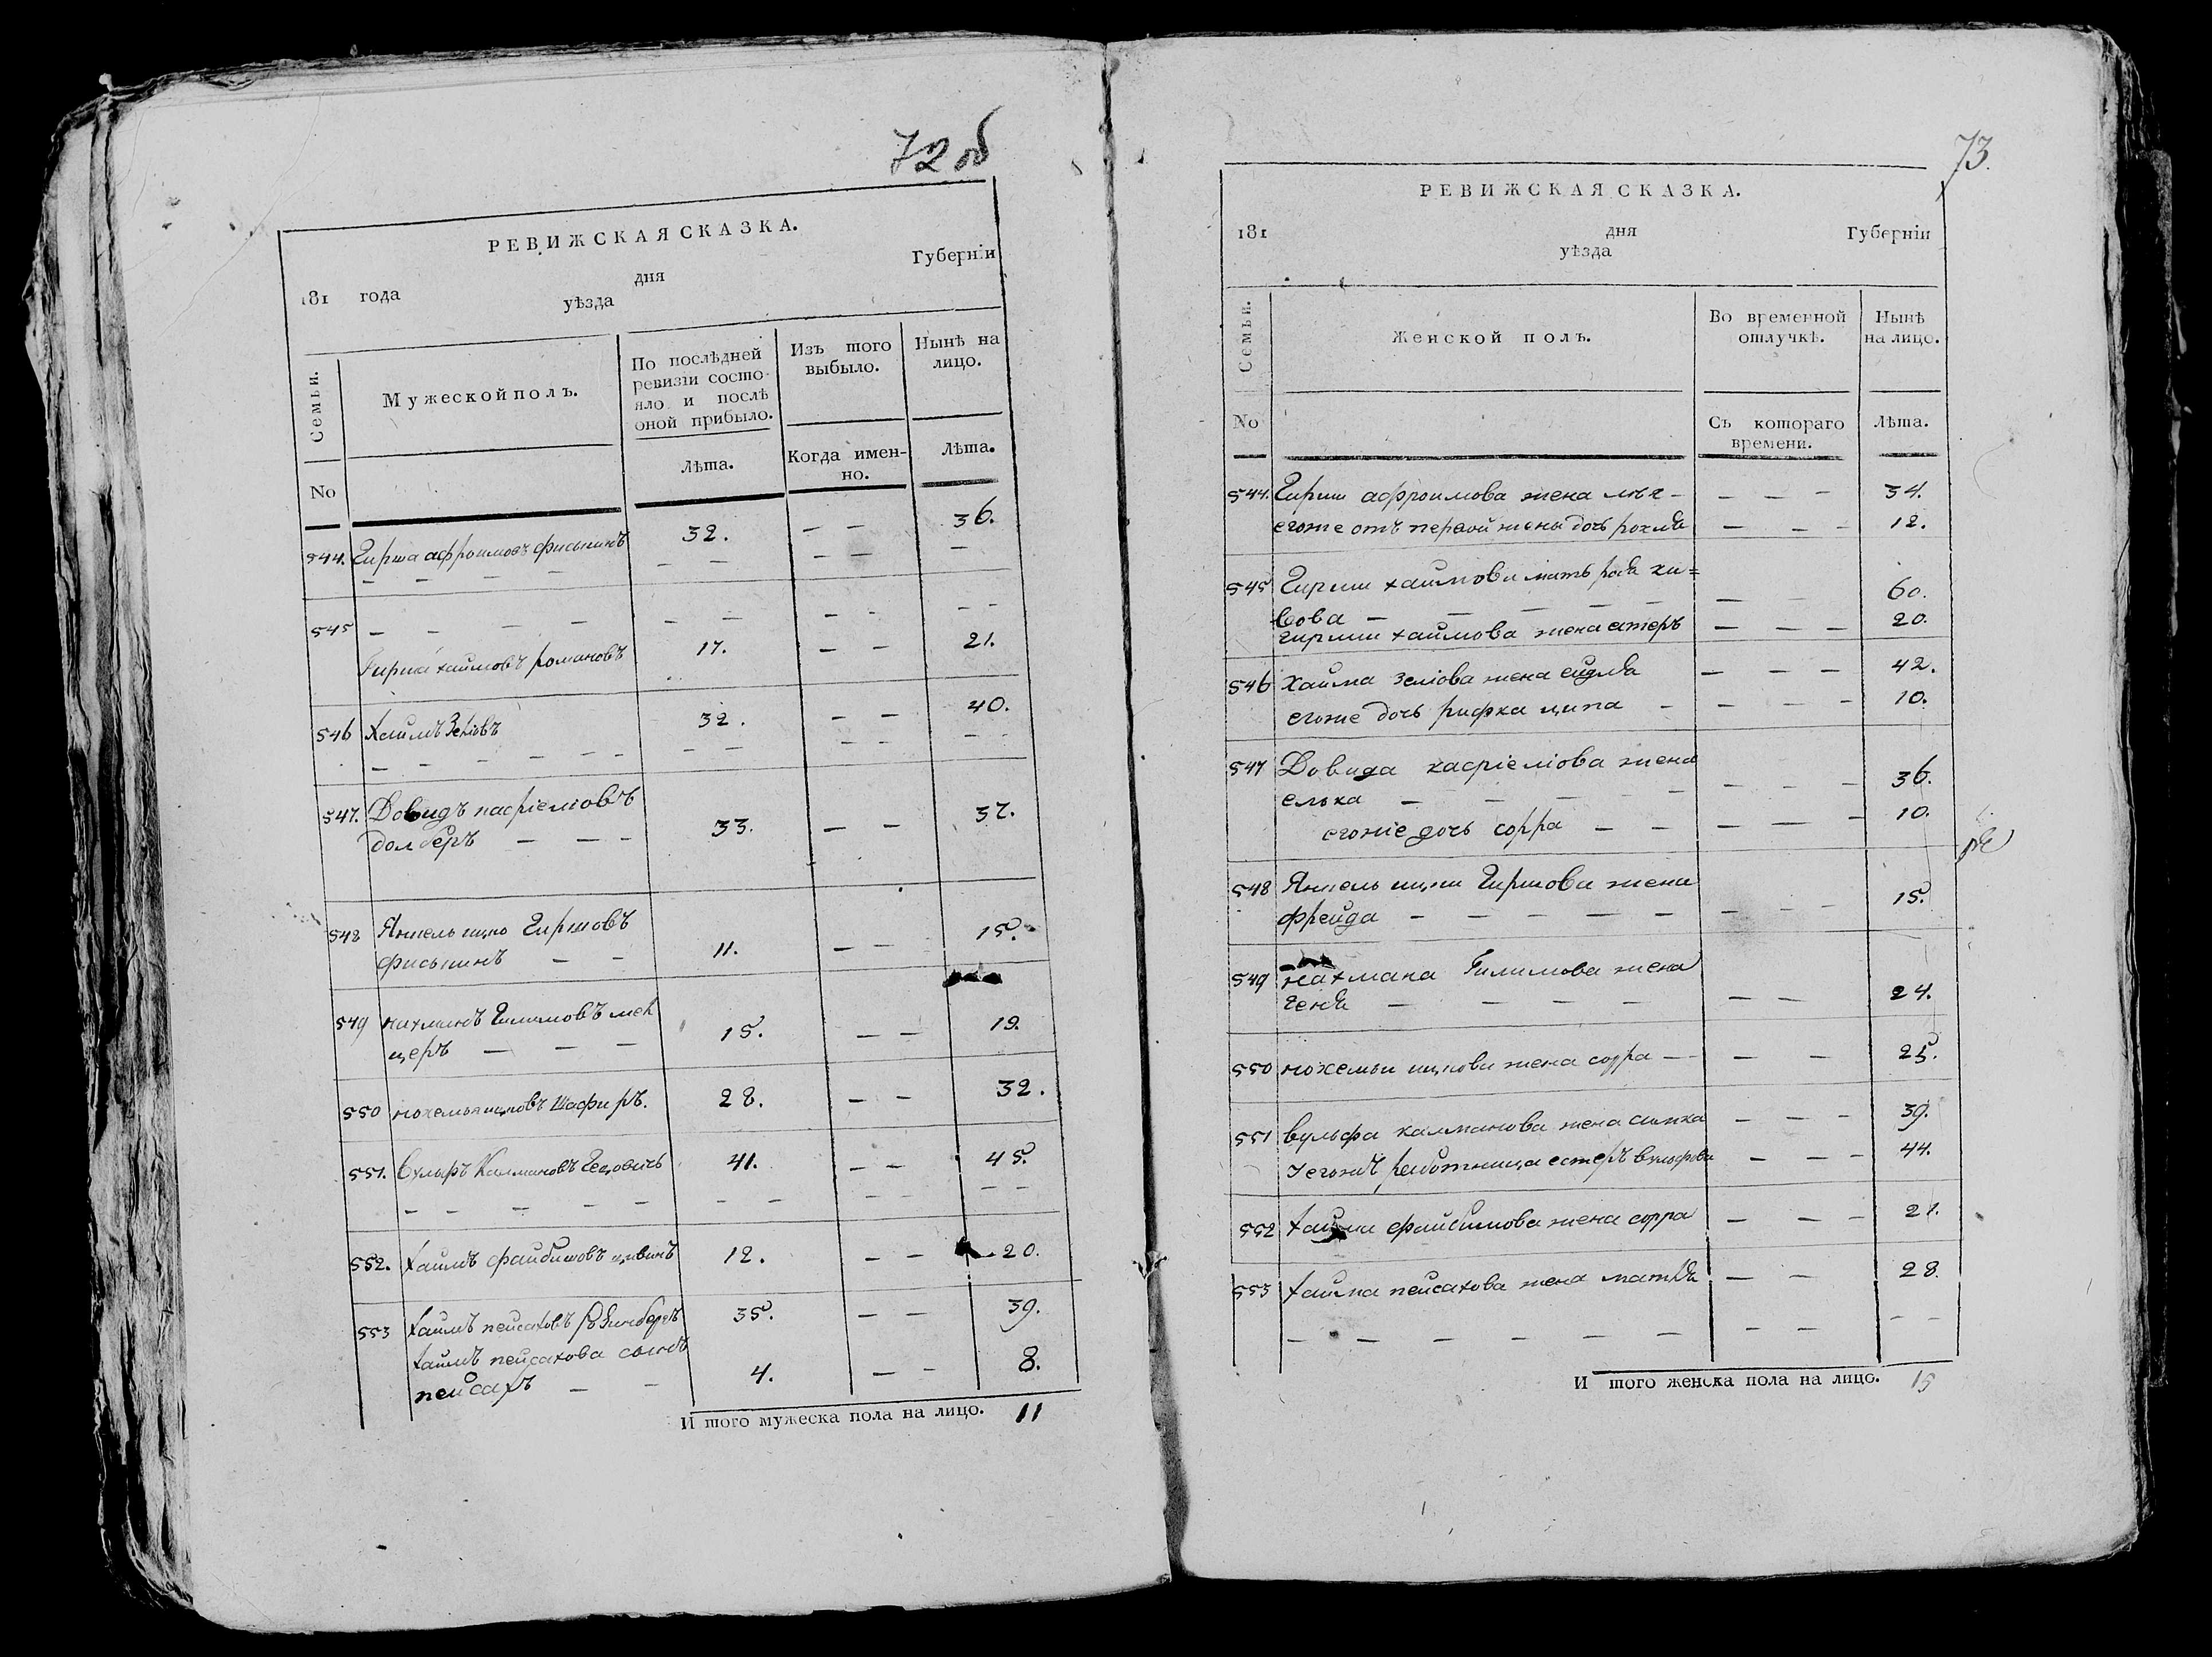 72 об
РЕВИЖСКАЯ СКАЗКА.
181 года
дня
уѣзда
Губерніи
Семьи.
Мужеской полъ.
По послѣдней ревизіи состояло и послѣ оной прибыло.
Изъ того выбыло.
Нынѣ на лицо.
No
Лѣта.
Когда именно.
Лѣта.
544. Гирша афроимовъ фиськинъ 32. — — 36.
— — — — — — — — —
545 — — — — — — — — — —
Гирша хаимовъ романовъ 17. — — 21.
546 Хаимъ Зеліовъ 32. — — 40.
— — — — — — — — — — — —
547. Довидъ касріеліовъ
долберъ — — — 33. — — 37.
548 Янкель ицко Гиршовъ
фиськинъ — — 11. — — 15.
549 нахманъ Гилимовъ мек
церъ — — — 15. — — 19.
550 нохемья ицковъ Шафиръ. 28. — — 32.
551. Вульфъ Калмановъ 41. — — 45.
— — — — — — — — — — —
552. хаимъ файбишовъ цивинъ 12. — — 20.
553 хаимъ пейсаховъ 35. — — 39.
хаимъ пейсахова сынъ
пейсахъ — — 4. — — 8.
И того мужеска пола на лицо. 11
73.
РЕВИЖСКАЯ СКАЗКА.
181
дня
уѣзда
Губерніи
Семьи.
Женской полъ.
Во временной отлучкѣ.
Нынѣ на лицо.
No
Съ котораго времени.
Лѣта.
544. Гирши афроимова жена — — — — 34.
егоже отъ первой жены дочь рохля — — — 12.
545 Гирши хаимова мать ки=
вова — — — — — — — 60.
гирши хаимова жена естеръ — — — 20.
546 Хаима Зеліова жена ейдля — — — 42.
егоже дочь рифка ципа — — — — 10.
547 Довида касріеліова жена
елька — — — — — — — — 36.
егоже дочь сорра — — — — — 10.
548 Янкель ицки Гиршова жена
фрейда — — — — — — — — 15.
549 нахмана Гилимова жена
геня — — — — — — 24.
550 нохемьи ицкови жена сорра — — — 25.
551 вульфа калманова жена симка — — — 39.
егожъ работница естеръ вульфова — — — 44.
552 хаима файбишова жена сорра — — — 21.
553 хаима пейсахова жена матля — — 28.
— — — — — — — — — — —
И того женска пола на лицо. 15